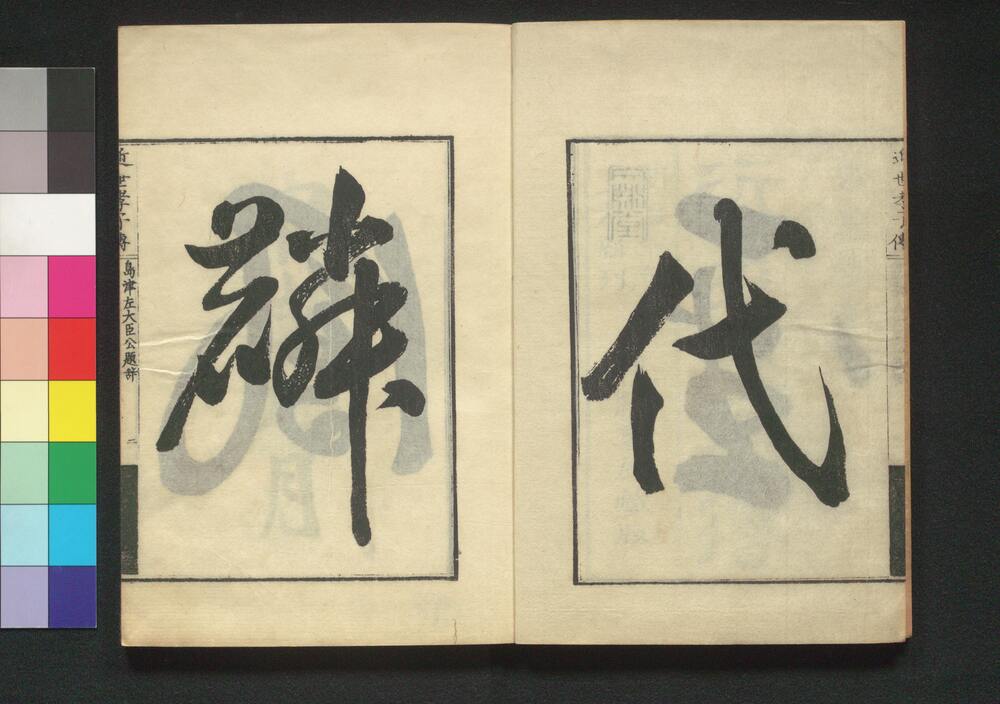 近世孝子傳
代
麟
近世孝子傳　島津左大臣公題辞　二